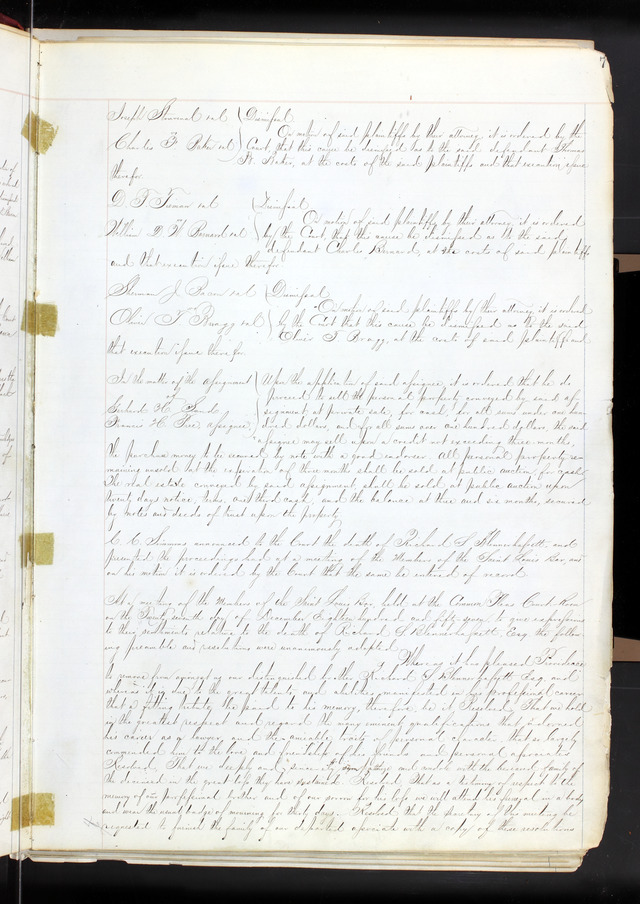 7
Joseph et al } Dismissal
On motion of said plaintiffs by their attorney it is ordered by the
Charles F. et al } Court that this cause be dismissed as to the said defendant Thomas
at the costs of the said plaintiffs and that execution issue
therefor.
D. T. et al } Dismissal
On motion of said plaintiffs by their attorney it is ordered
William D. W. Barnard et al } by the Court that this cause be dismissed as to the said
defendant Charles Barnard, at the costs of said plaintiffs
and that execution issue therefor
Sherman J. Bacon et al } Dismissal
On motion of said plaintiffs by their attorney it is ordered
Oliver T. Bragg et al } by the Court that this cause be dismissed as to the said
Oliver T. Bragg, at the costs of said plaintiffs and
that execution issue therefor.
In the matter of the assignment } Upon the application of said assignee, it is ordered that he do
of } proceed to sell the personal property conveyed by said as
H. } signment at private sale, for cash, for all sums under one hun
Francis H. assignee } dred dollars, and for all sums over one hundred dollars, the said
assignee may sell upon a credit not exceeding three months,
the purchase money to be secured by note with a good endorser. All personal property re
maining unsold at the expiration of three months shall be sold at public auction for cash
The real estate conveyed by said assignment shall be sold at public auction upon
twenty days notice, terms, one third cash, and the balance at three and six months, secured
by notes and deeds of trust upon the property
C. C. Simmons announced to the Court the death of Richard S. Blennerhassett and
presented the proceedings had at a meeting of the Members of the Saint Louis Bar, and
on his motion it is ordered by the Court that the same be entered of record.
At a meeting of the Members of the Saint Louis Bar, held at the Common Pleas Court Room
on the Twenty day of December Eighteen hundred and fifty seven to give expressions
to their sentiments relative to the death of Richard S. Blennerhassett, Esq. the follow
ing preamble and resolutions were unanimously adopted
Whereas it has pleased Providence
to remove from amongst us our distinguished brother Richard S. Blennerhassett Esq. and
whereas it is due to the great talents and abilities manifested in his professional career
that a fitting tribute be paid to his memory, therefore be it Resolved, That we hold
in the greatest respect and regard the many eminent qualifications that adorned
his career as a lawyer, and the amiable traits of personal character that so largely
commended him to the love and friendship of his friends and personal associates
Resolved, That we deeply and sincerely sympathy and condole with the bereaved family of
the deceased in the great loss they have sustained. Resolved, that as a testimony of respect to the
memory of our professional brother and of our sorrow for his loss we will attend his funeral in a body
and wear the usual badge of mourning for thirty days. Resolved that the Secretary of this meeting be
requested to furnish the family of our departed associate with a copy of these resolutions